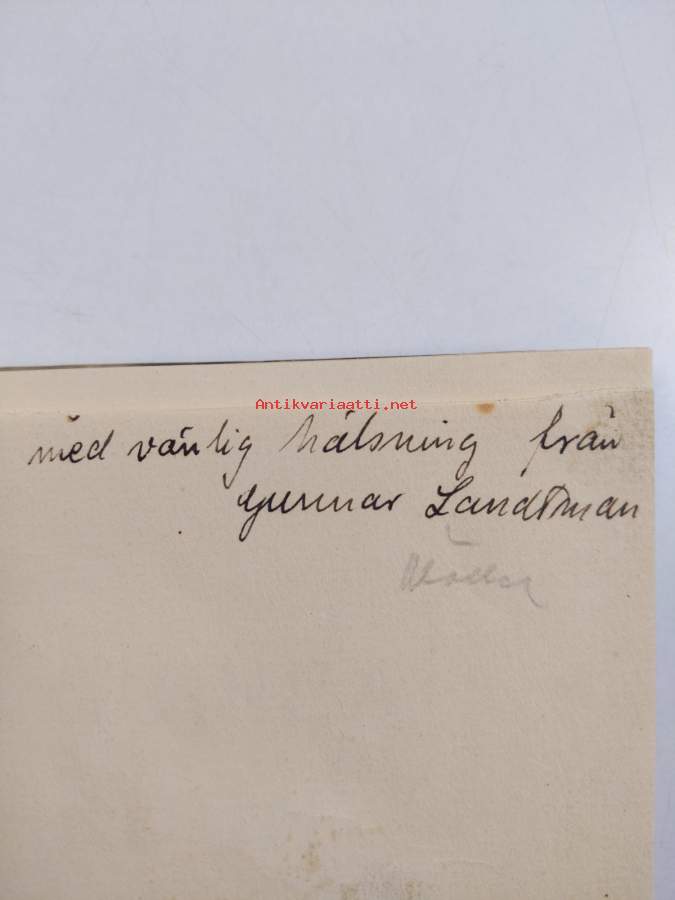 Antikvariaatti.net
med vänlig hälsning från
Gunnar Landtman